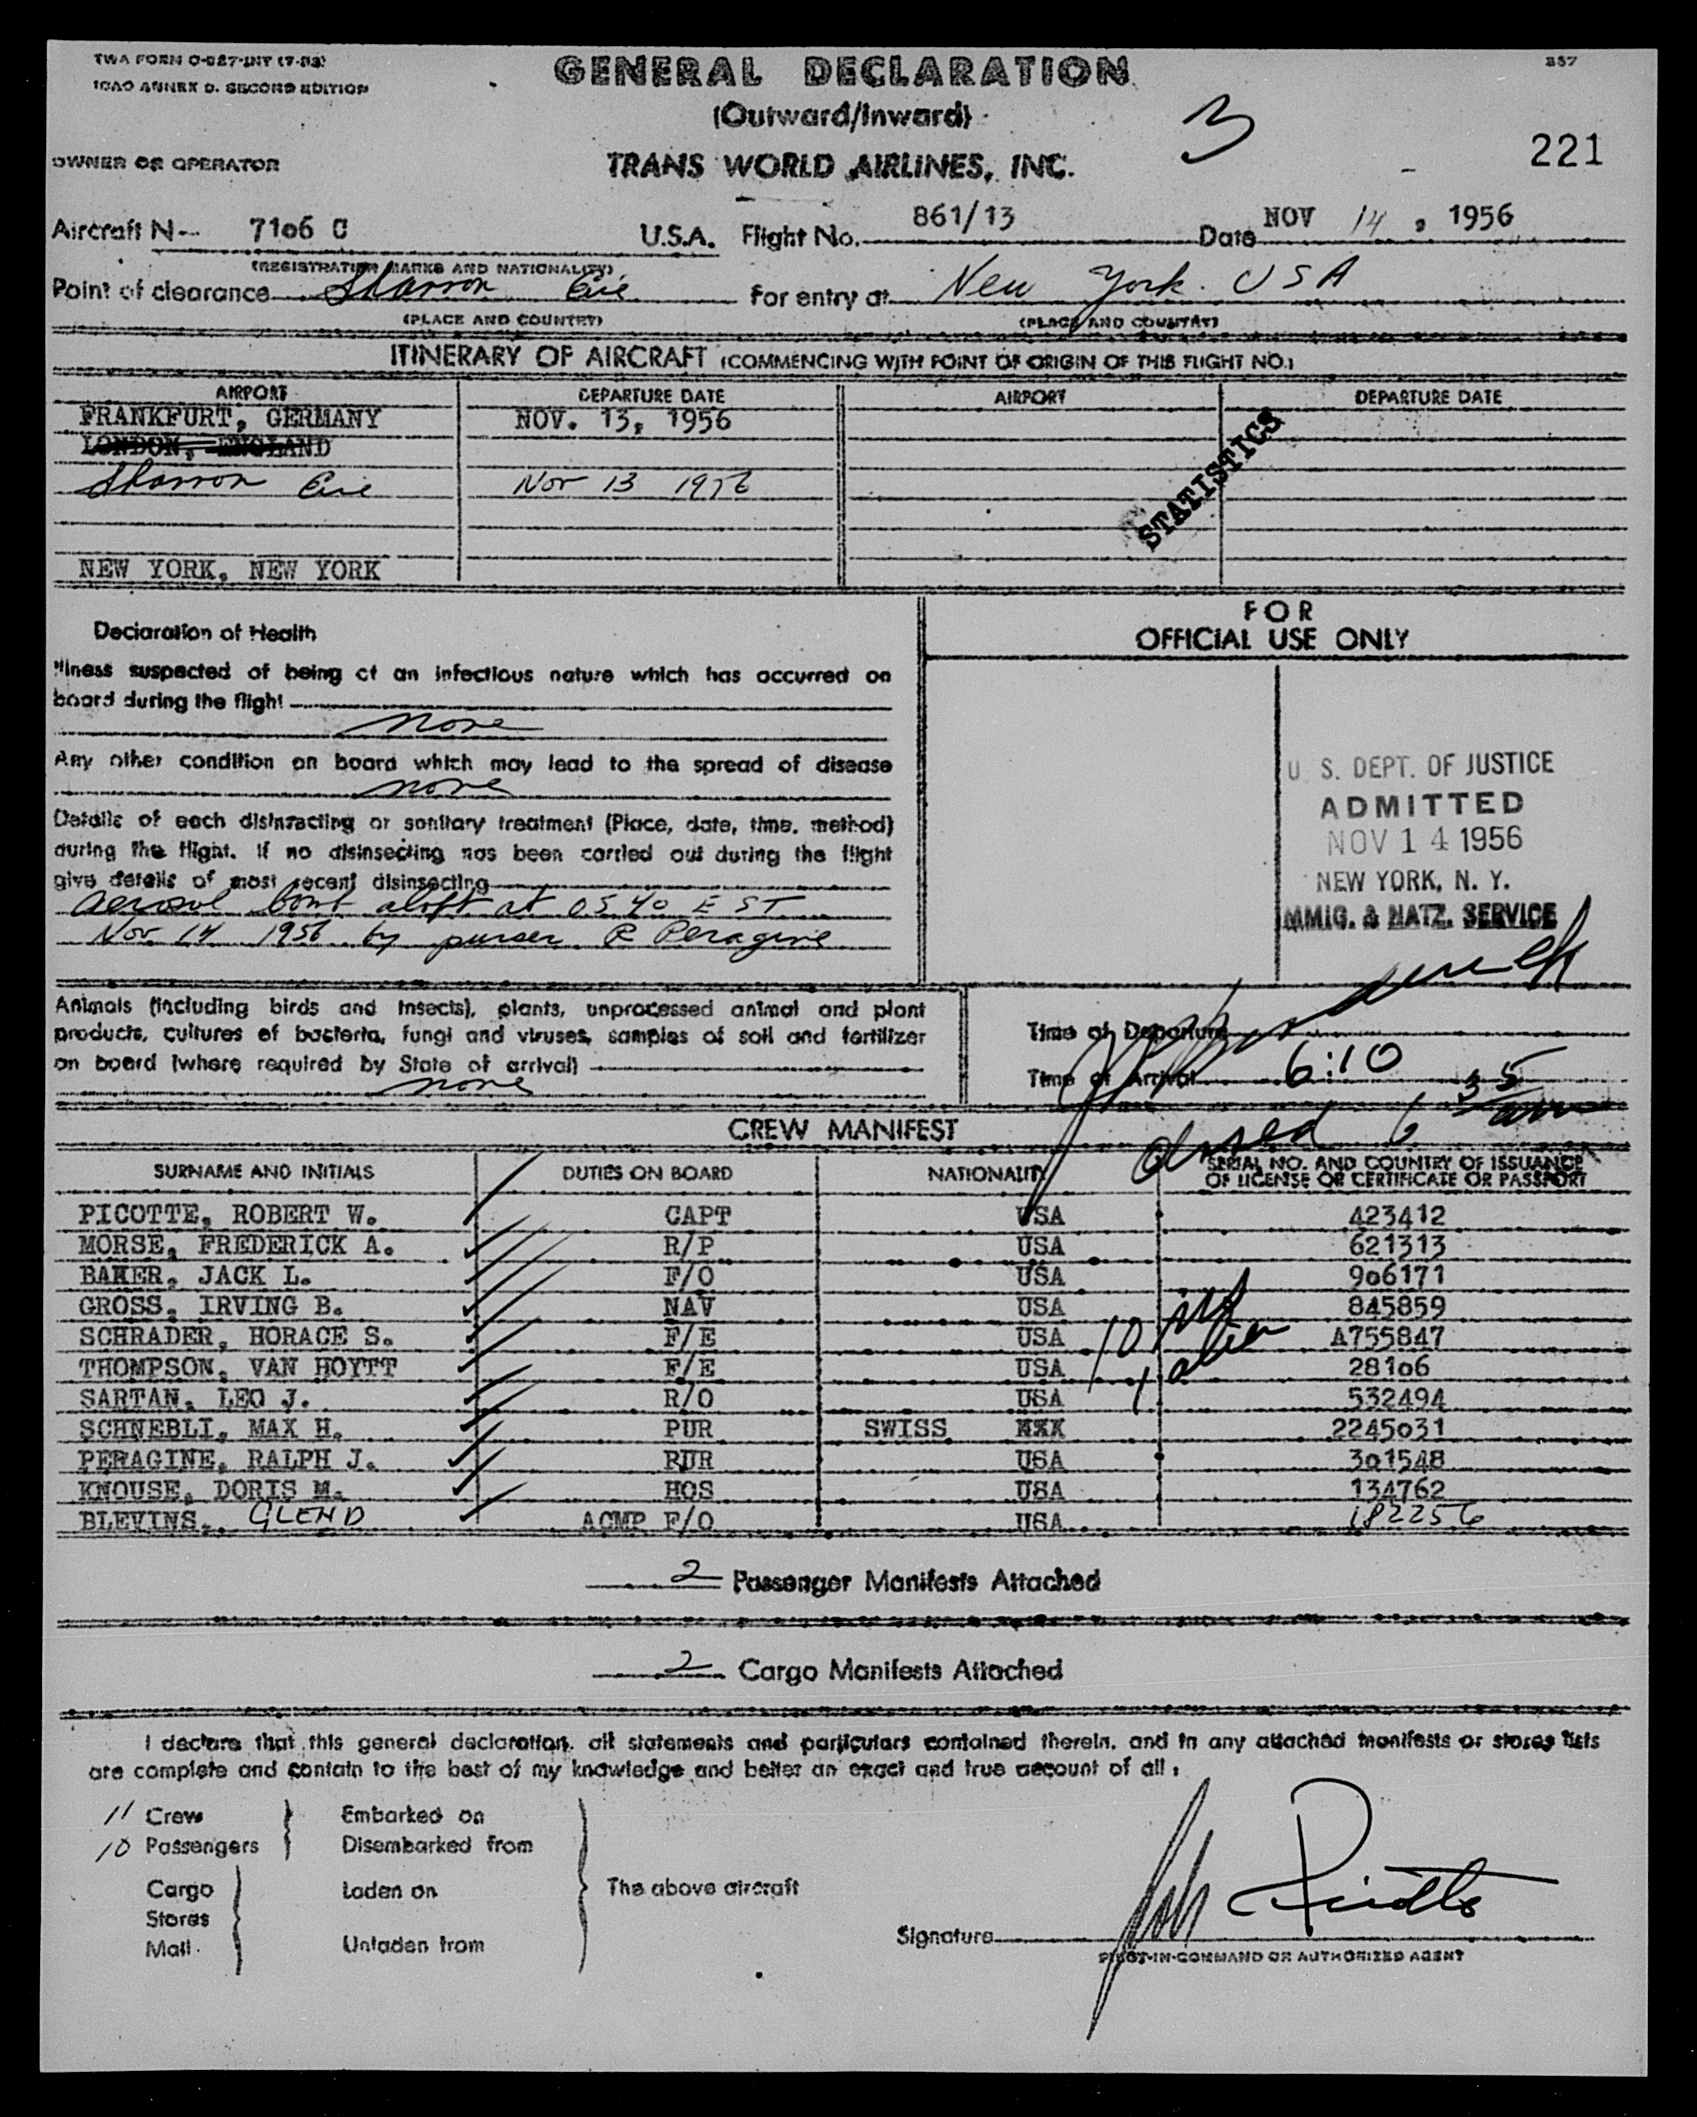 TWA FORM O-927-INT (7-53)
ICAO ANNEX D. SECOND EDITION
GENERAL DECLARATION
(Outward/Inward)
357
3
221
OWNER OR OPERATOR
TRANS WORLD AIRLINES, INC.
Aircraft N-- 7106 C U.S.A. Flight No. 861/13 Date NOV 14, 1956
(REGISTRATION MARKS AND NATIONALITY)
Point of clearance Shannon Eire For entry at New York. USA
(PLACE AND COUNTRY) (PLACE AND COUNTRY)
ITINERARY OF AIRCRAFT (COMMENCING WITH POINT OF ORIGIN OF THIS FLIGHT NO.)
AIRPORT DEPARTURE DATE AIRPORT DEPARTURE DATE
FRANKFURT, GERMANY NOV. 13, 1956
LONDON, ENGLAND
Shannon Eire Nov 13 1956
STATISTICS
NEW YORK, NEW YORK
Declaration of Health
Illness suspected of being of an infectious nature which has occurred on
board during the flight
none
Any other condition on board which may lead to the spread of disease
none
Details of each disinsecting or sanitary treatment (Place, date, time, method)
during the flight. If no disinsecting has been carried out during the flight
give details of most recent disinsecting
aerosol bomb aloft at 0540 EST
Nov 14 1956 by purser R Peragine
FOR
OFFICIAL USE ONLY
U. S. DEPT. OF JUSTICE
ADMITTED
NOV 14 1956
NEW YORK, N. Y.
IMMIG. & NATZ. SERVICE
Animals (including birds and insects), plants, unprocessed animal and plant
products, cultures of bacteria, fungi and viruses, samples of soil and fertilizer
on board (where required by State of arrival)
none
Time of Departure
Time of Arrival 6:10
closed 6 35 am
CREW MANIFEST
SURNAME AND INITIALS DUTIES ON BOARD NATIONALITY SERIAL NO. AND COUNTRY OF ISSUANCE
OF LICENSE OR CERTIFICATE OR PASSPORT
PICOTTE, ROBERT W. CAPT USA 423412
MORSE, FREDERICK A. R/P USA 621313
BAKER, JACK L. F/O USA 906171
GROSS, IRVING B. NAV USA 845859
SCHRADER, HORACE S. F/E USA A755847
THOMPSON, VAN HOYTT F/E USA 28106
SARTAN, LEO J. R/O USA 532494
SCHNEBLI, MAX H. PUR SWISS XXX 2245031
PERAGINE, RALPH J. PUR USA 301548
KNOUSE, DORIS M. HOS USA 134762
BLEVINS, GLEND ACMP F/O USA 182256
10
1 alien
2 Passenger Manifests Attached
2 Cargo Manifests Attached
I declare that this general declaration, all statements and particulars contained therein, and in any attached manifests or stores lists
are complete and contain to the best of my knowledge and belief an exact and true account of all:
11 Crew Embarked on
10 Passengers Disembarked from
Cargo Laden on The above aircraft
Stores
Mail Unladen from
Signature
PILOT-IN-COMMAND OR AUTHORIZED AGENT